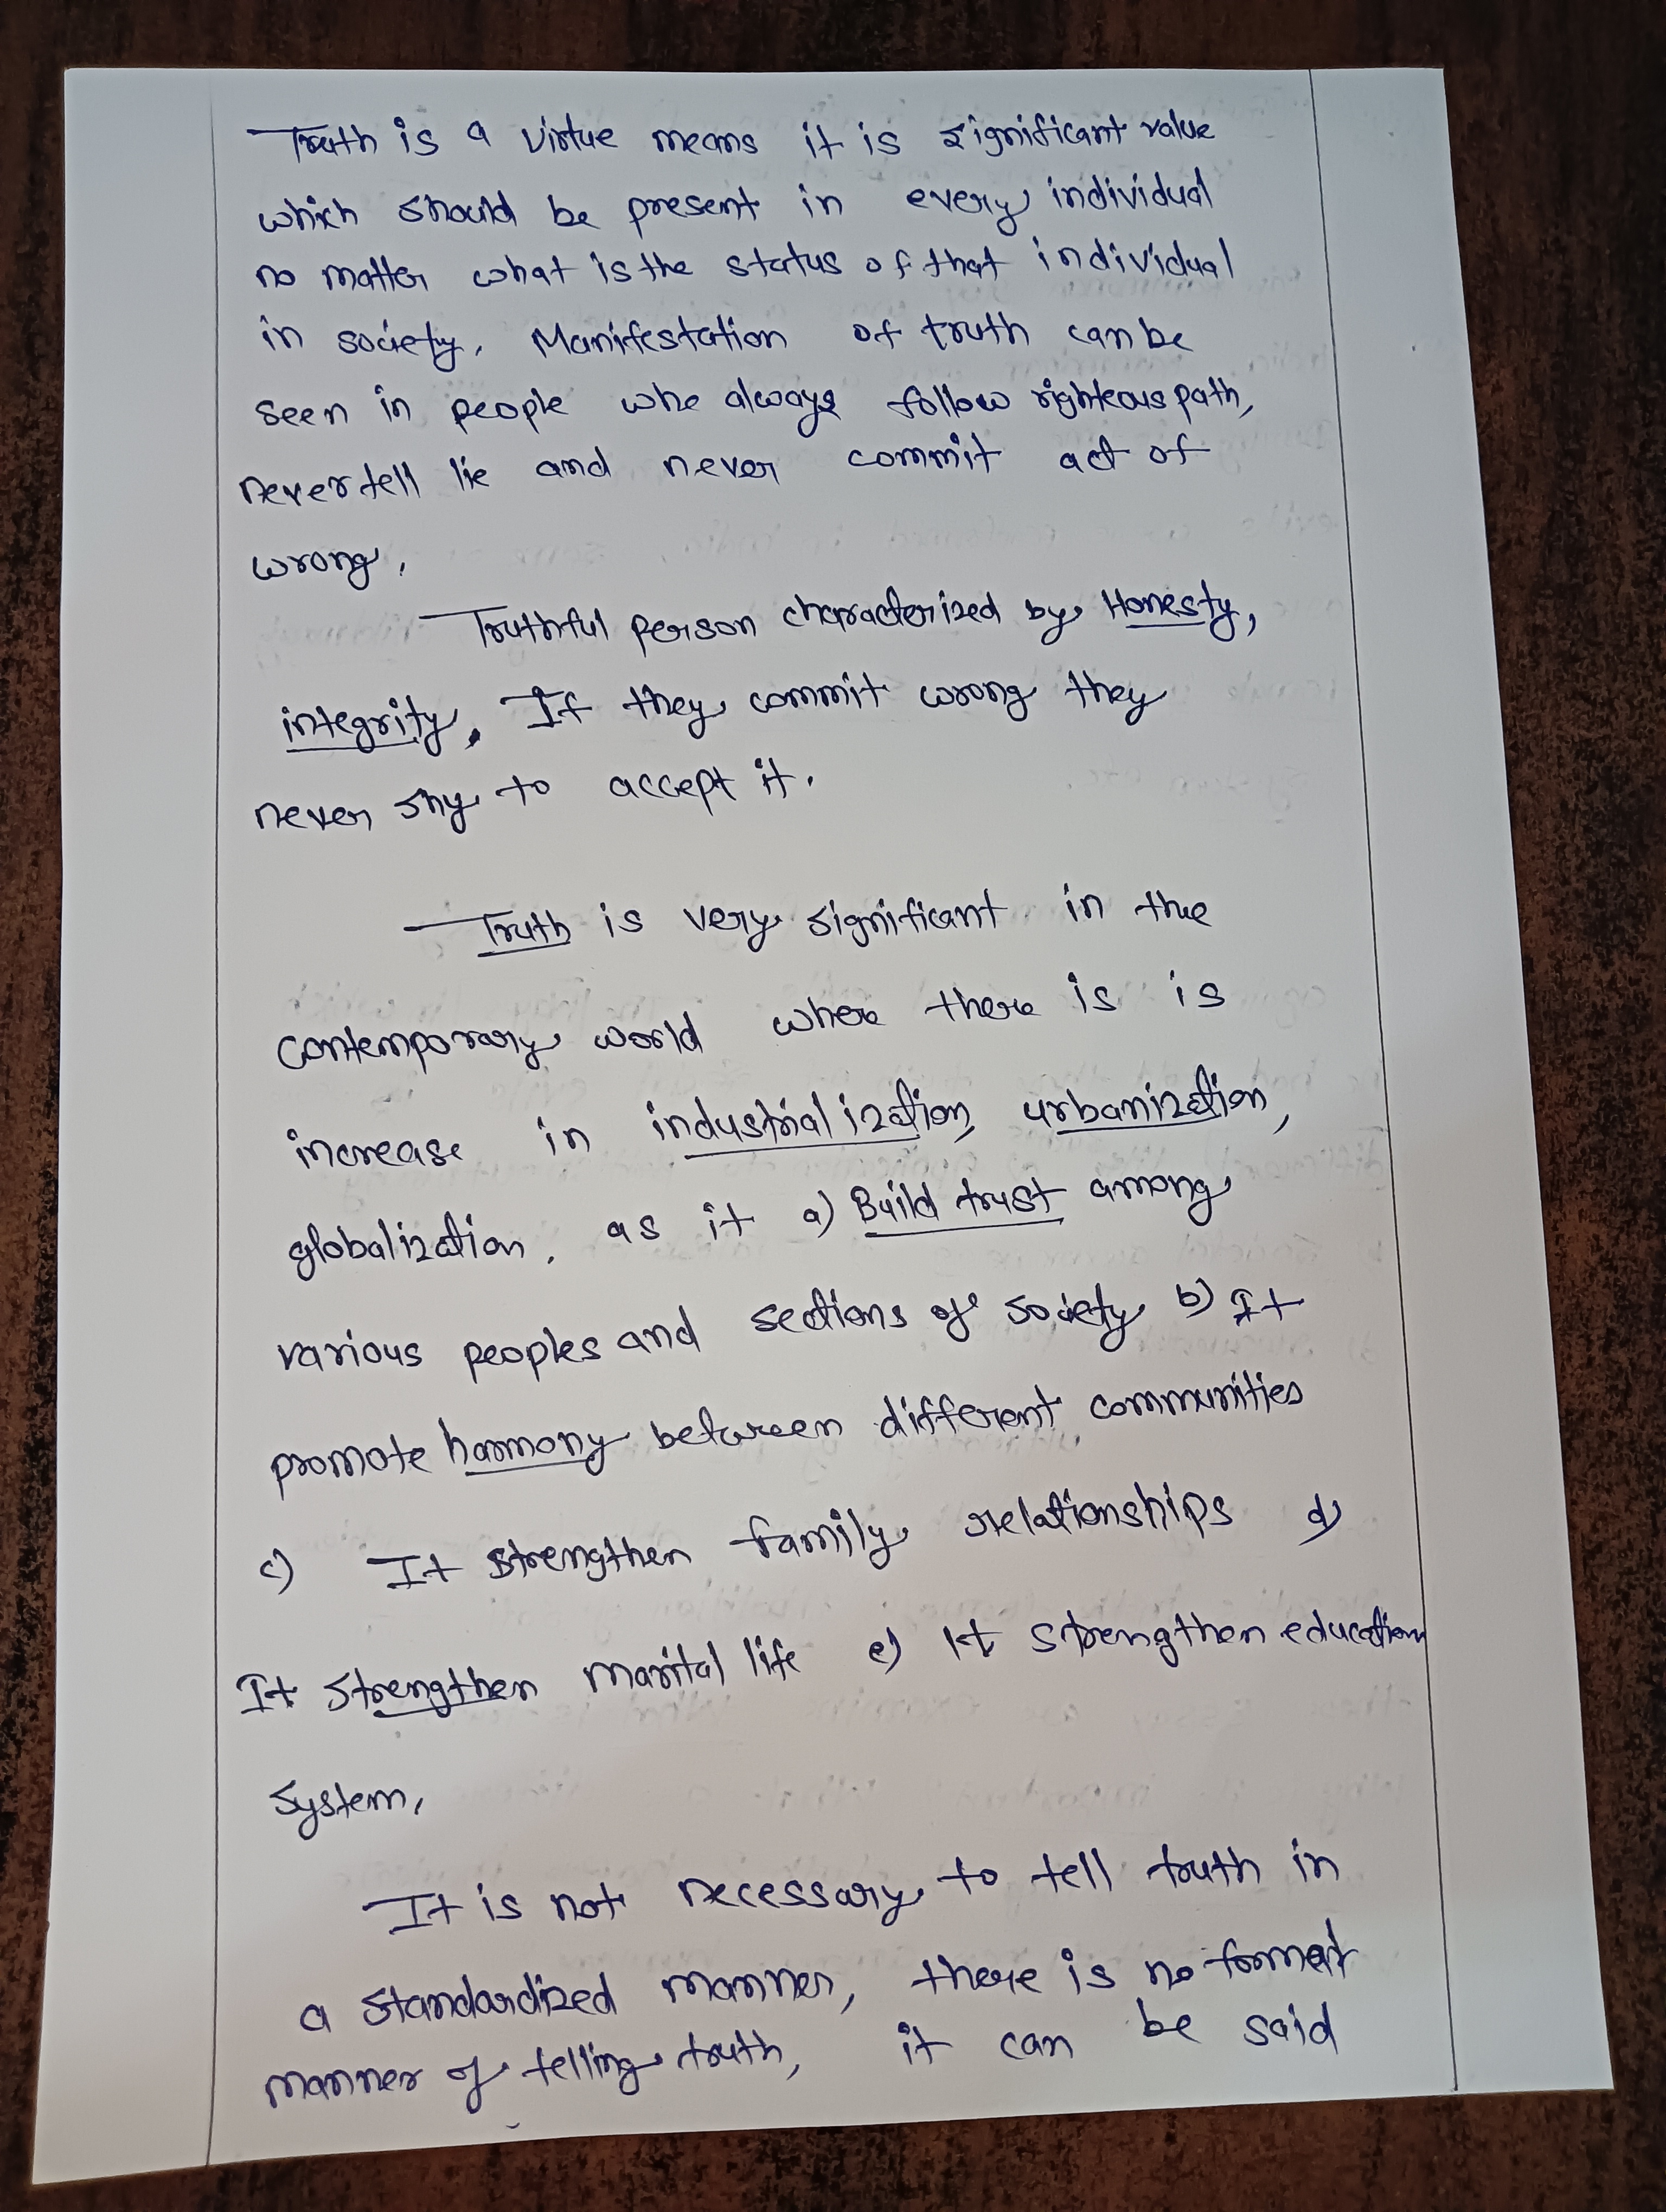 Truth is a virtue means it is significant value
which should be present in every individual
no matter what is the status of that individual
in society. Manifestation of truth can be
seen in people who always follow righteous path,
never tell lie and never commit act of
wrong.
Truthful person characterized by Honesty,
integrity. If they commit wrong they
never shy to accept it.
Truth is very significant in the
contemporary world where there is is
increase in industrialization, urbanization,
globalization. as it a) Build trust among
various peoples and sections of society b) It
promote harmony between different communities
c) It strengthen family relationships d)
It strengthen marital life e) It strengthen education
system.
It is not necessary to tell truth in
a standardized manner, there is no format
manner of telling truth, it can be said